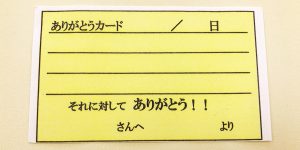 ありがとうカード ／ 日
それに対して ありがとう！！
さんへ より